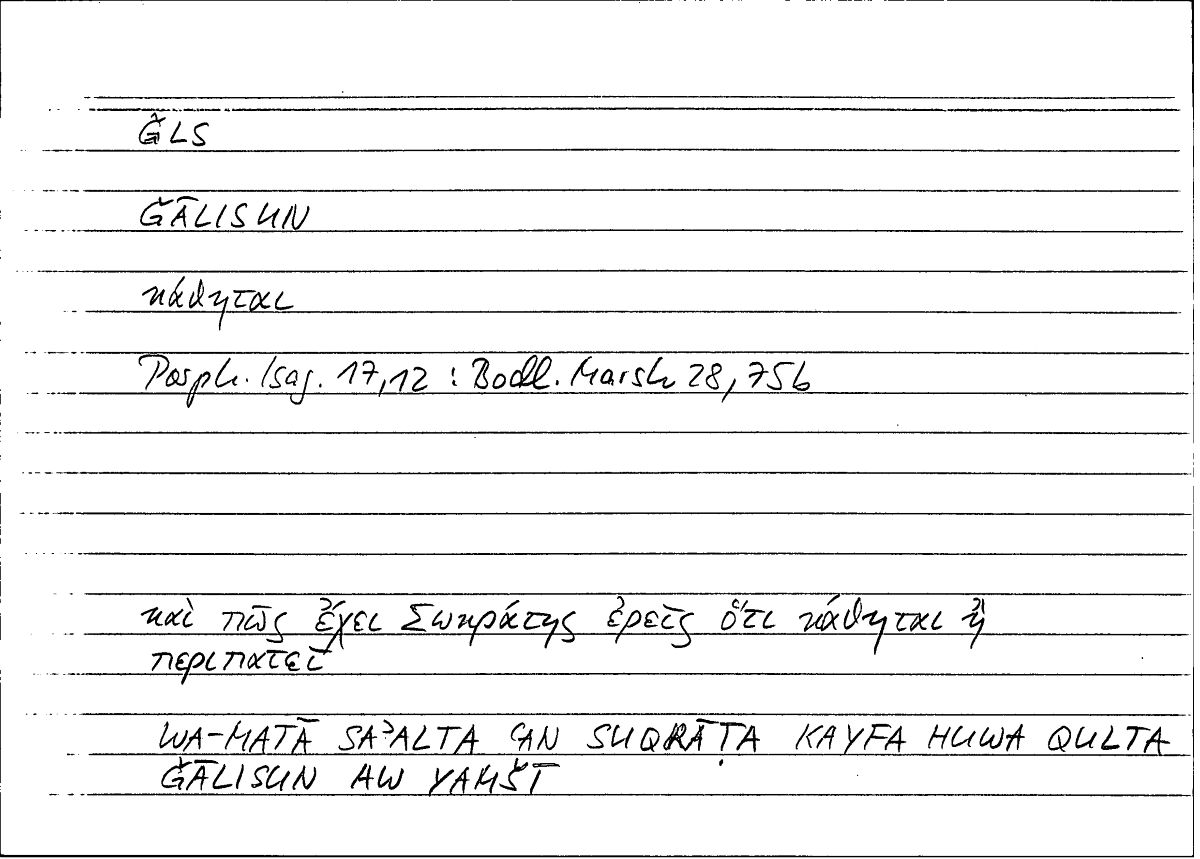 ǦLS
ǦĀLISUN
κάθηται
Porph. Isag. 17,12 : Bodl. Marsh 28,75b
καὶ πῶς ἔχει Σωκράτης ἐρεῖς ὅτι κάθηται ἢ
περιπατεῖ
WA-MATĀ SAʾALTA ʿAN SUQRĀṬA KAYFA HUWA QULTA
ǦĀLISUN AW YAMŠĪ